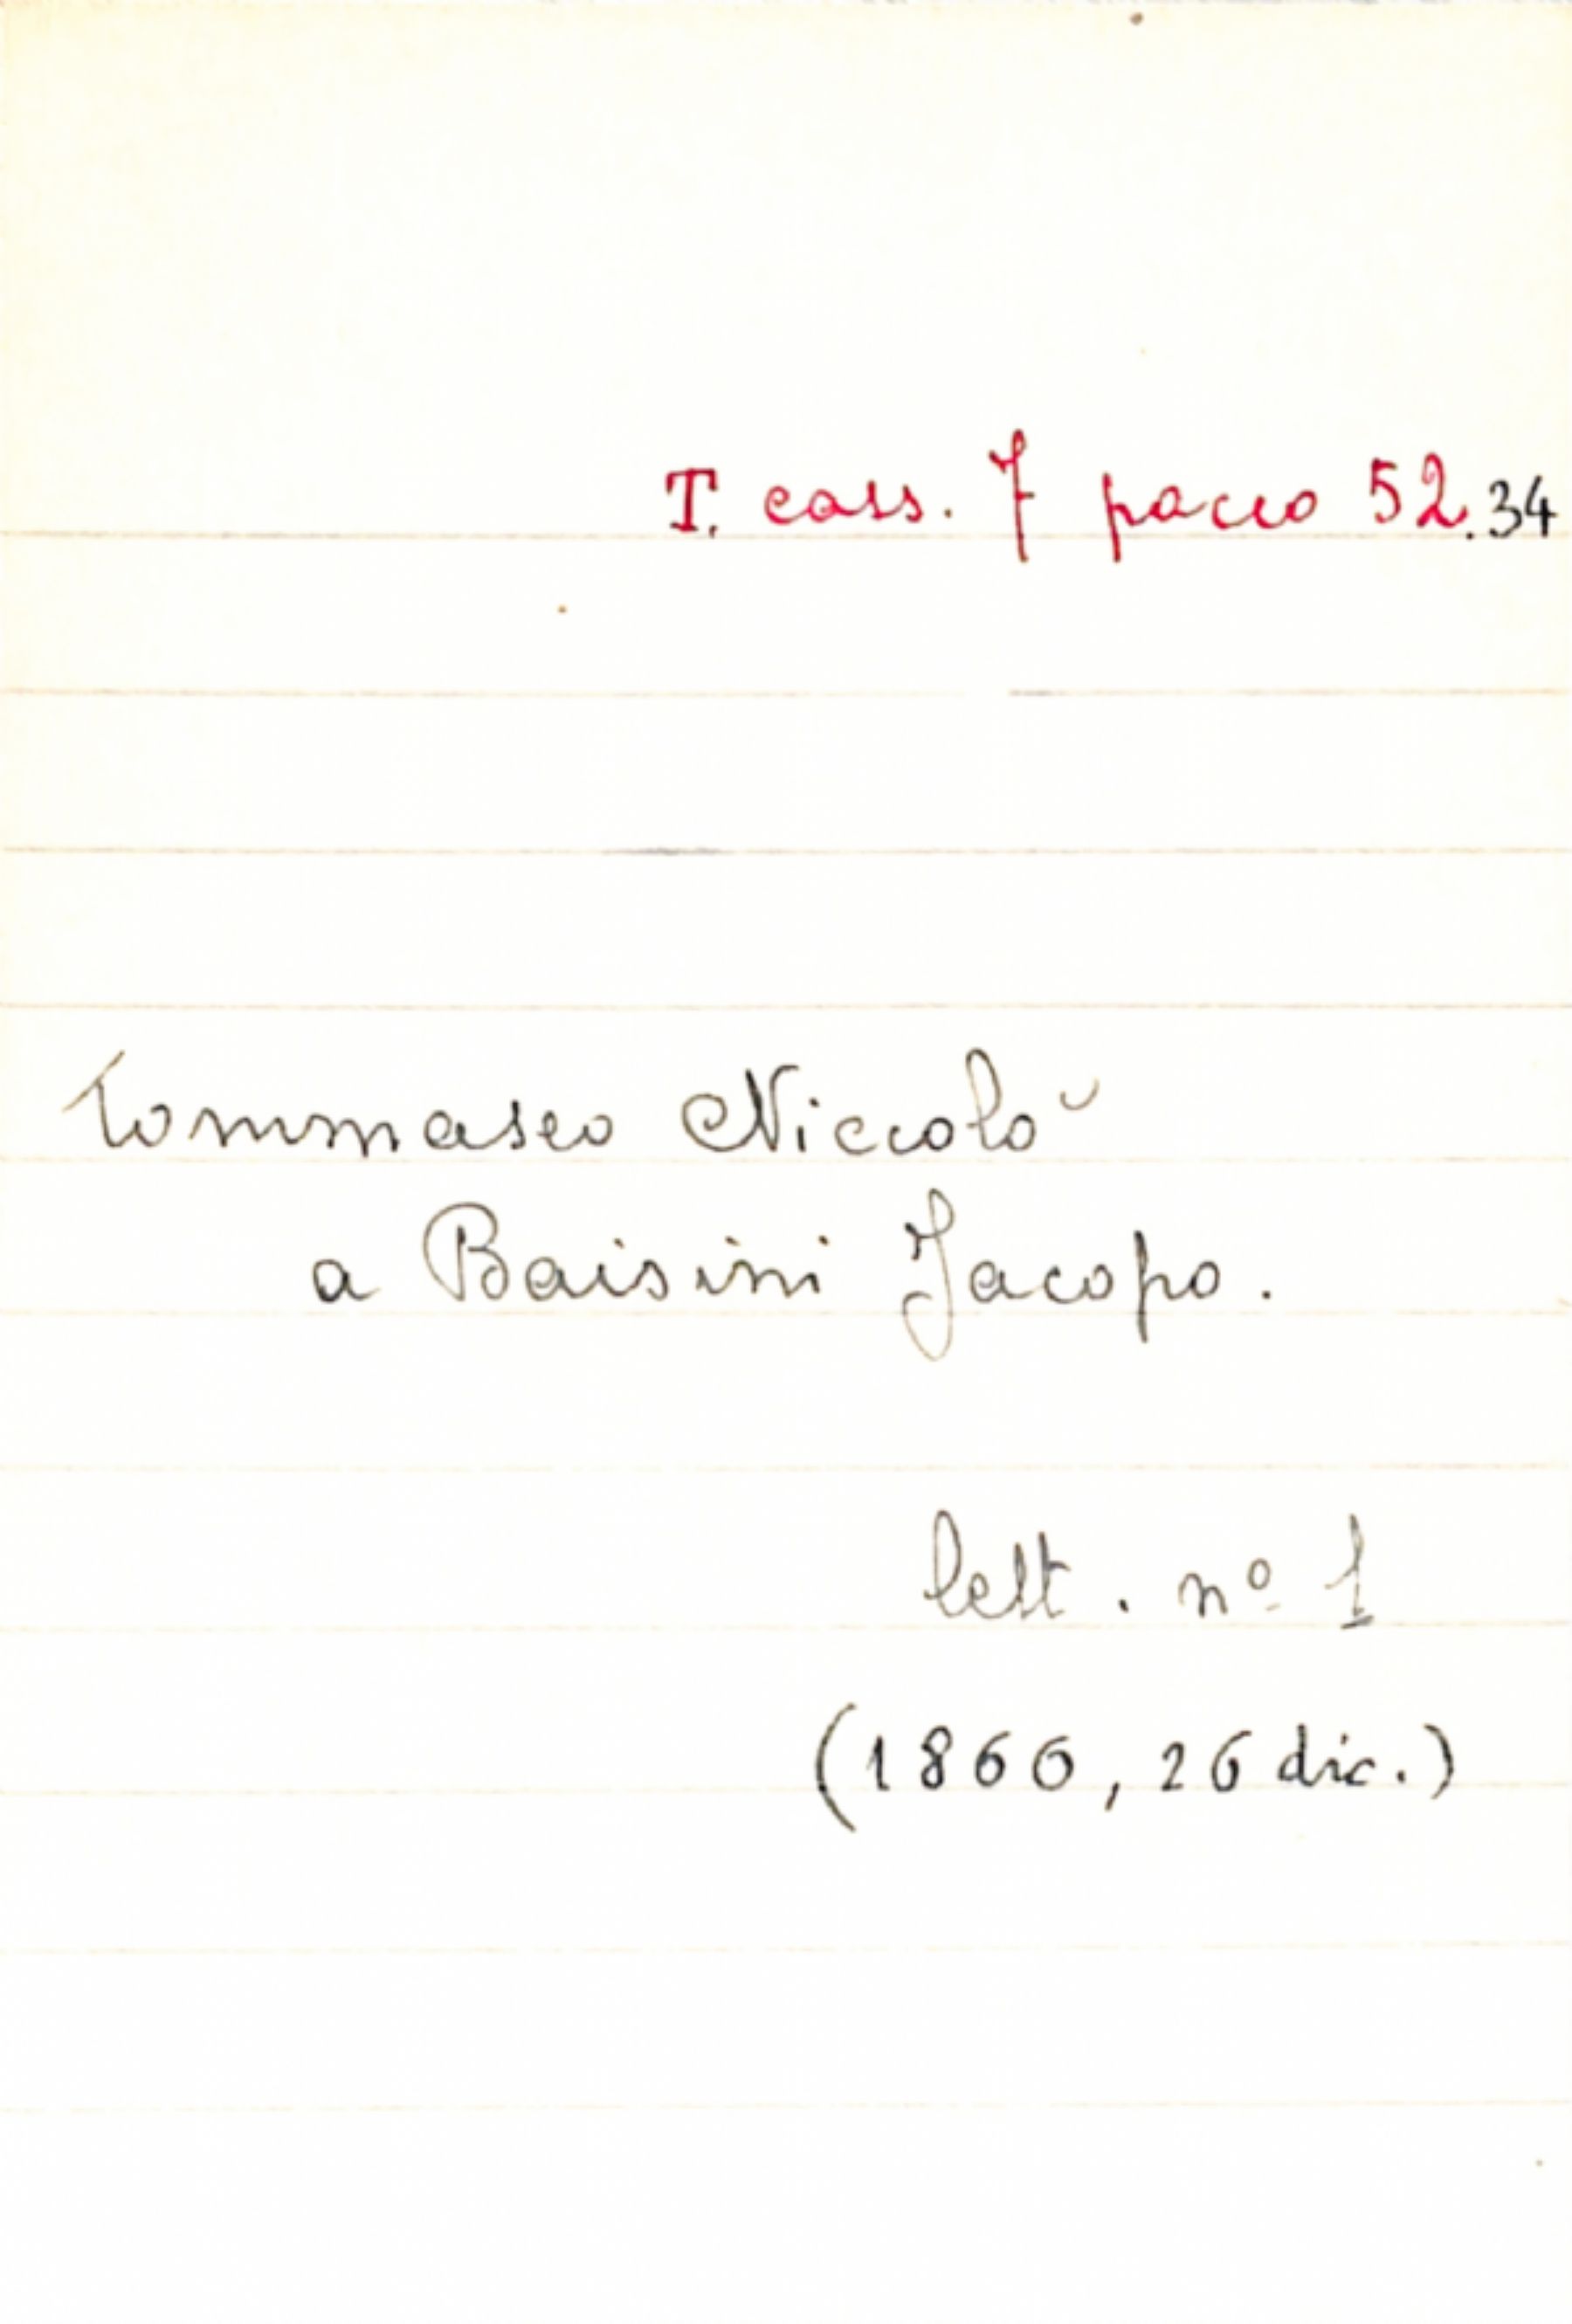 T. cass. 7 pacco 52.34
Tommaseo Niccolò
a Baisini Jacopo.
lett. nº 1
(1866, 26 dic.)